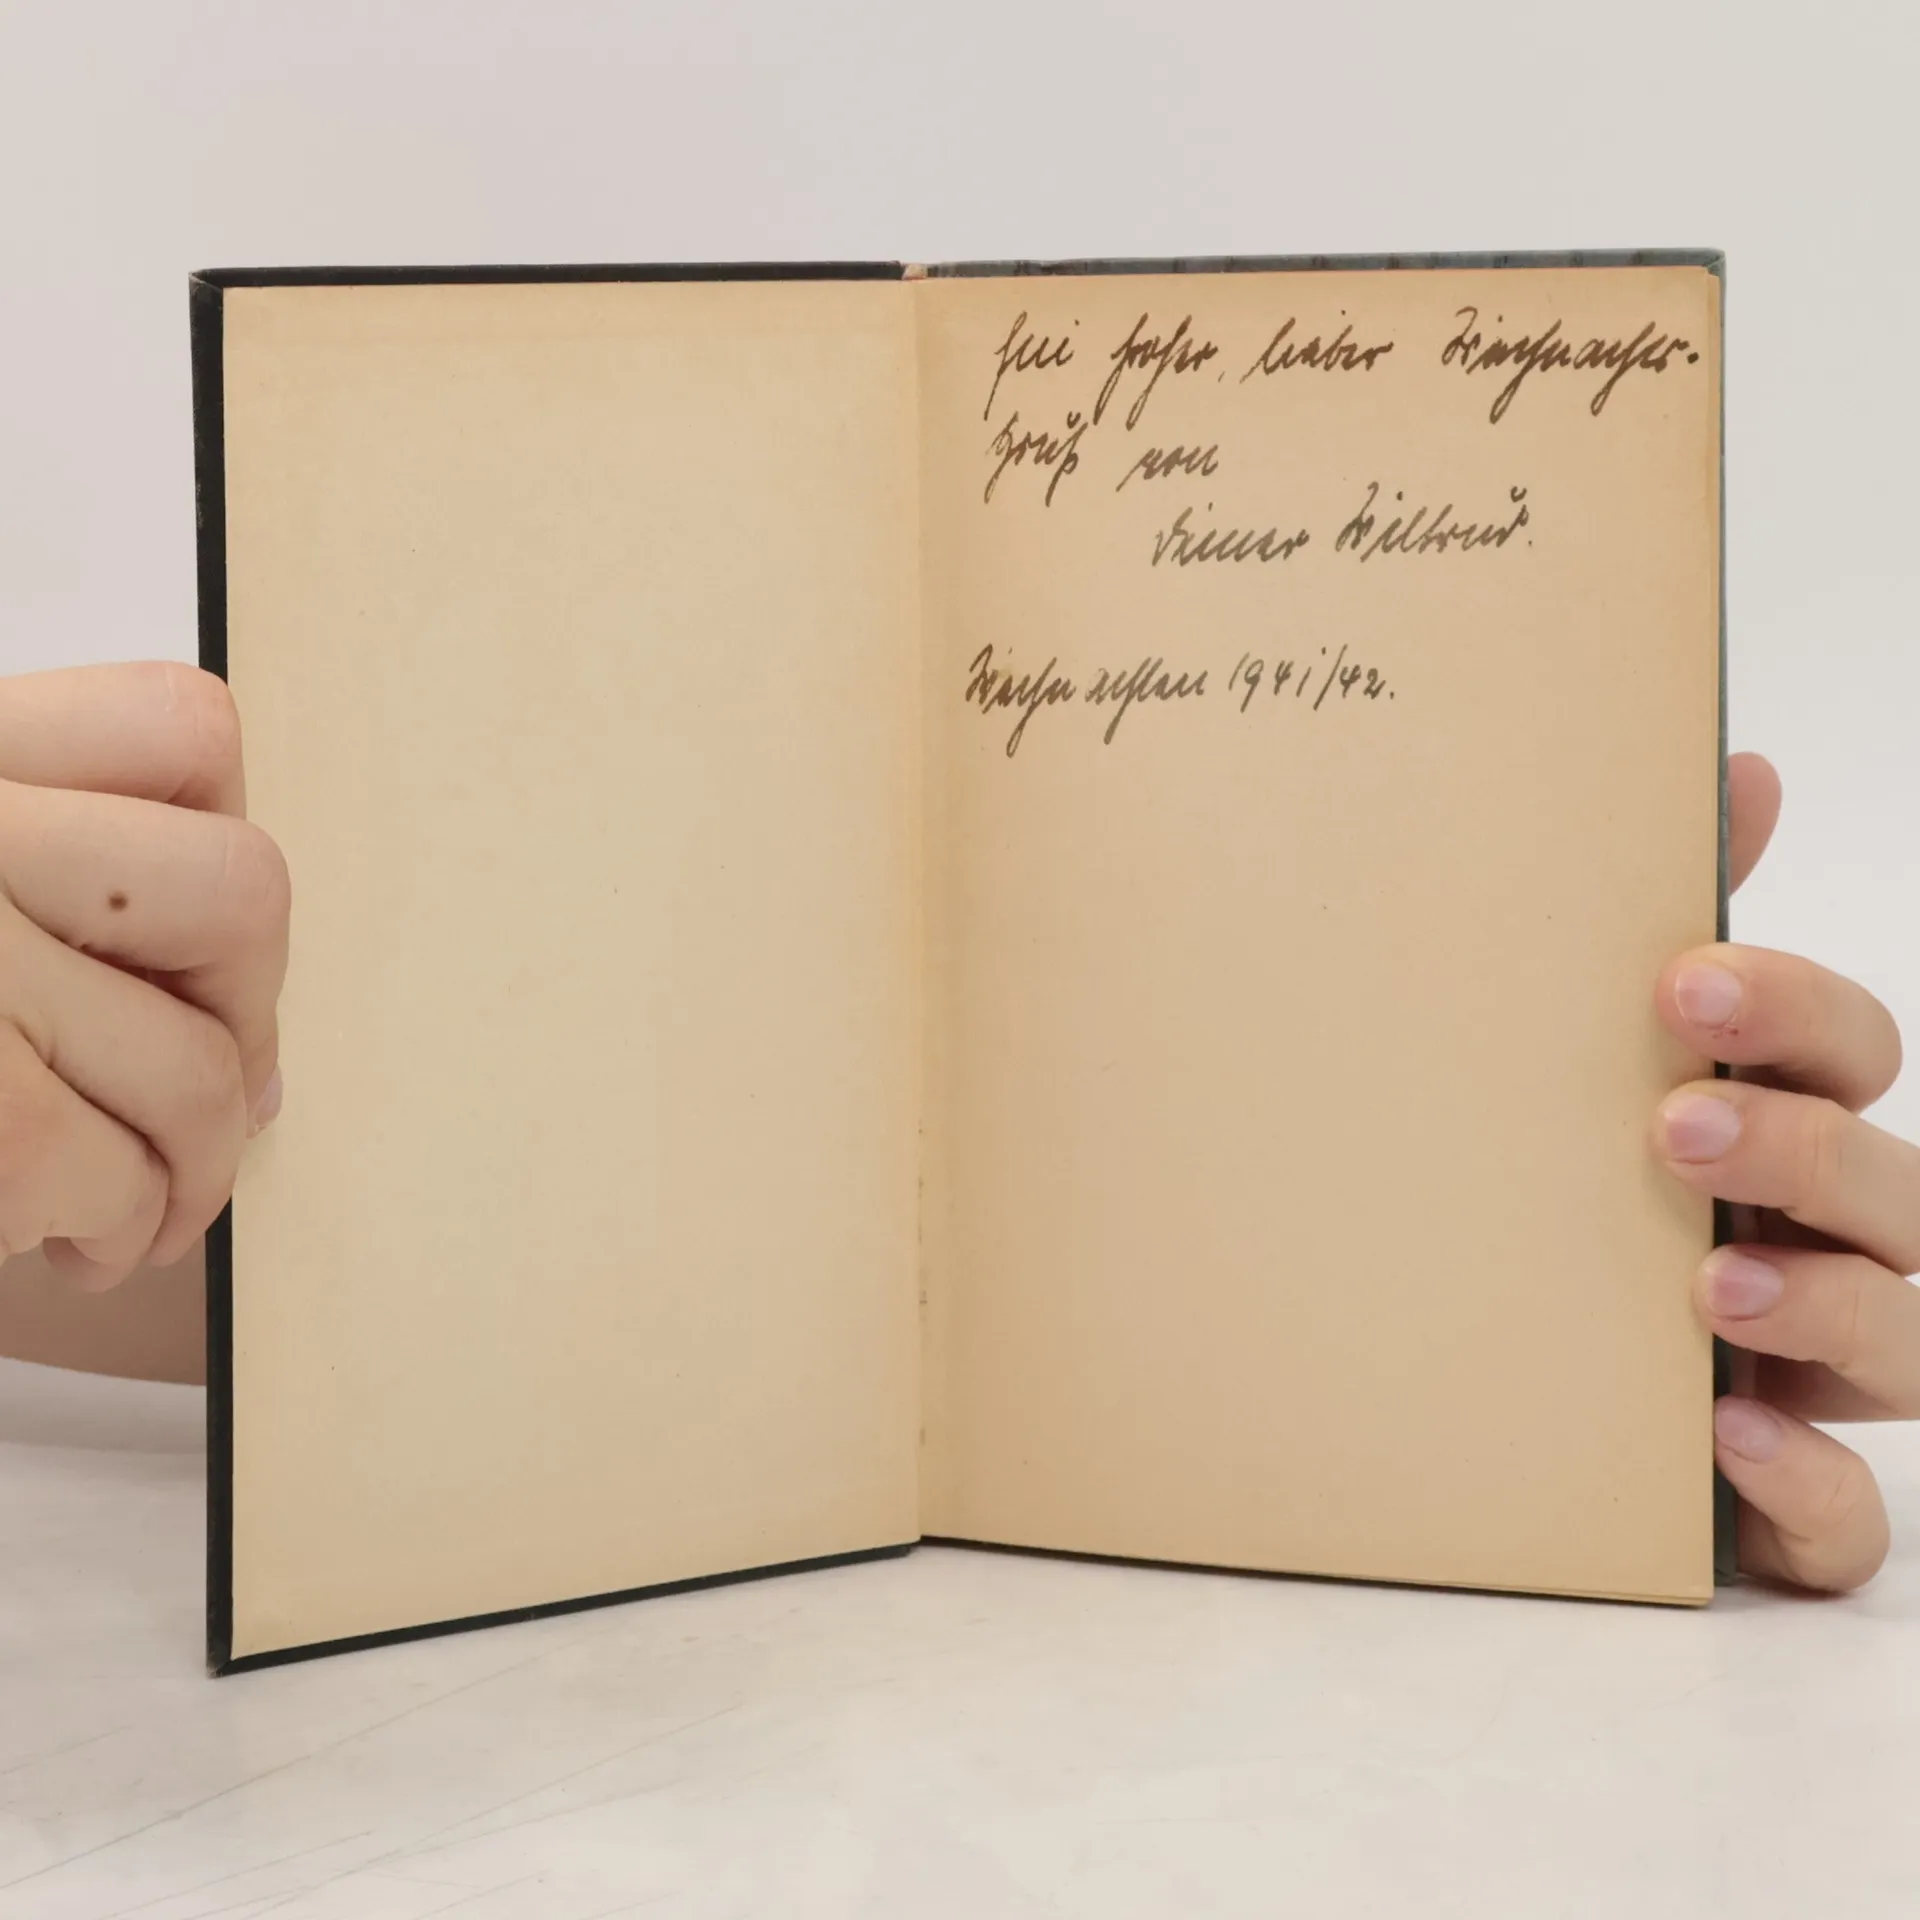 Ein froher, lieber Weihnachts-
gruß von
deiner Wiltrud.
Weihnachten 1941/42.